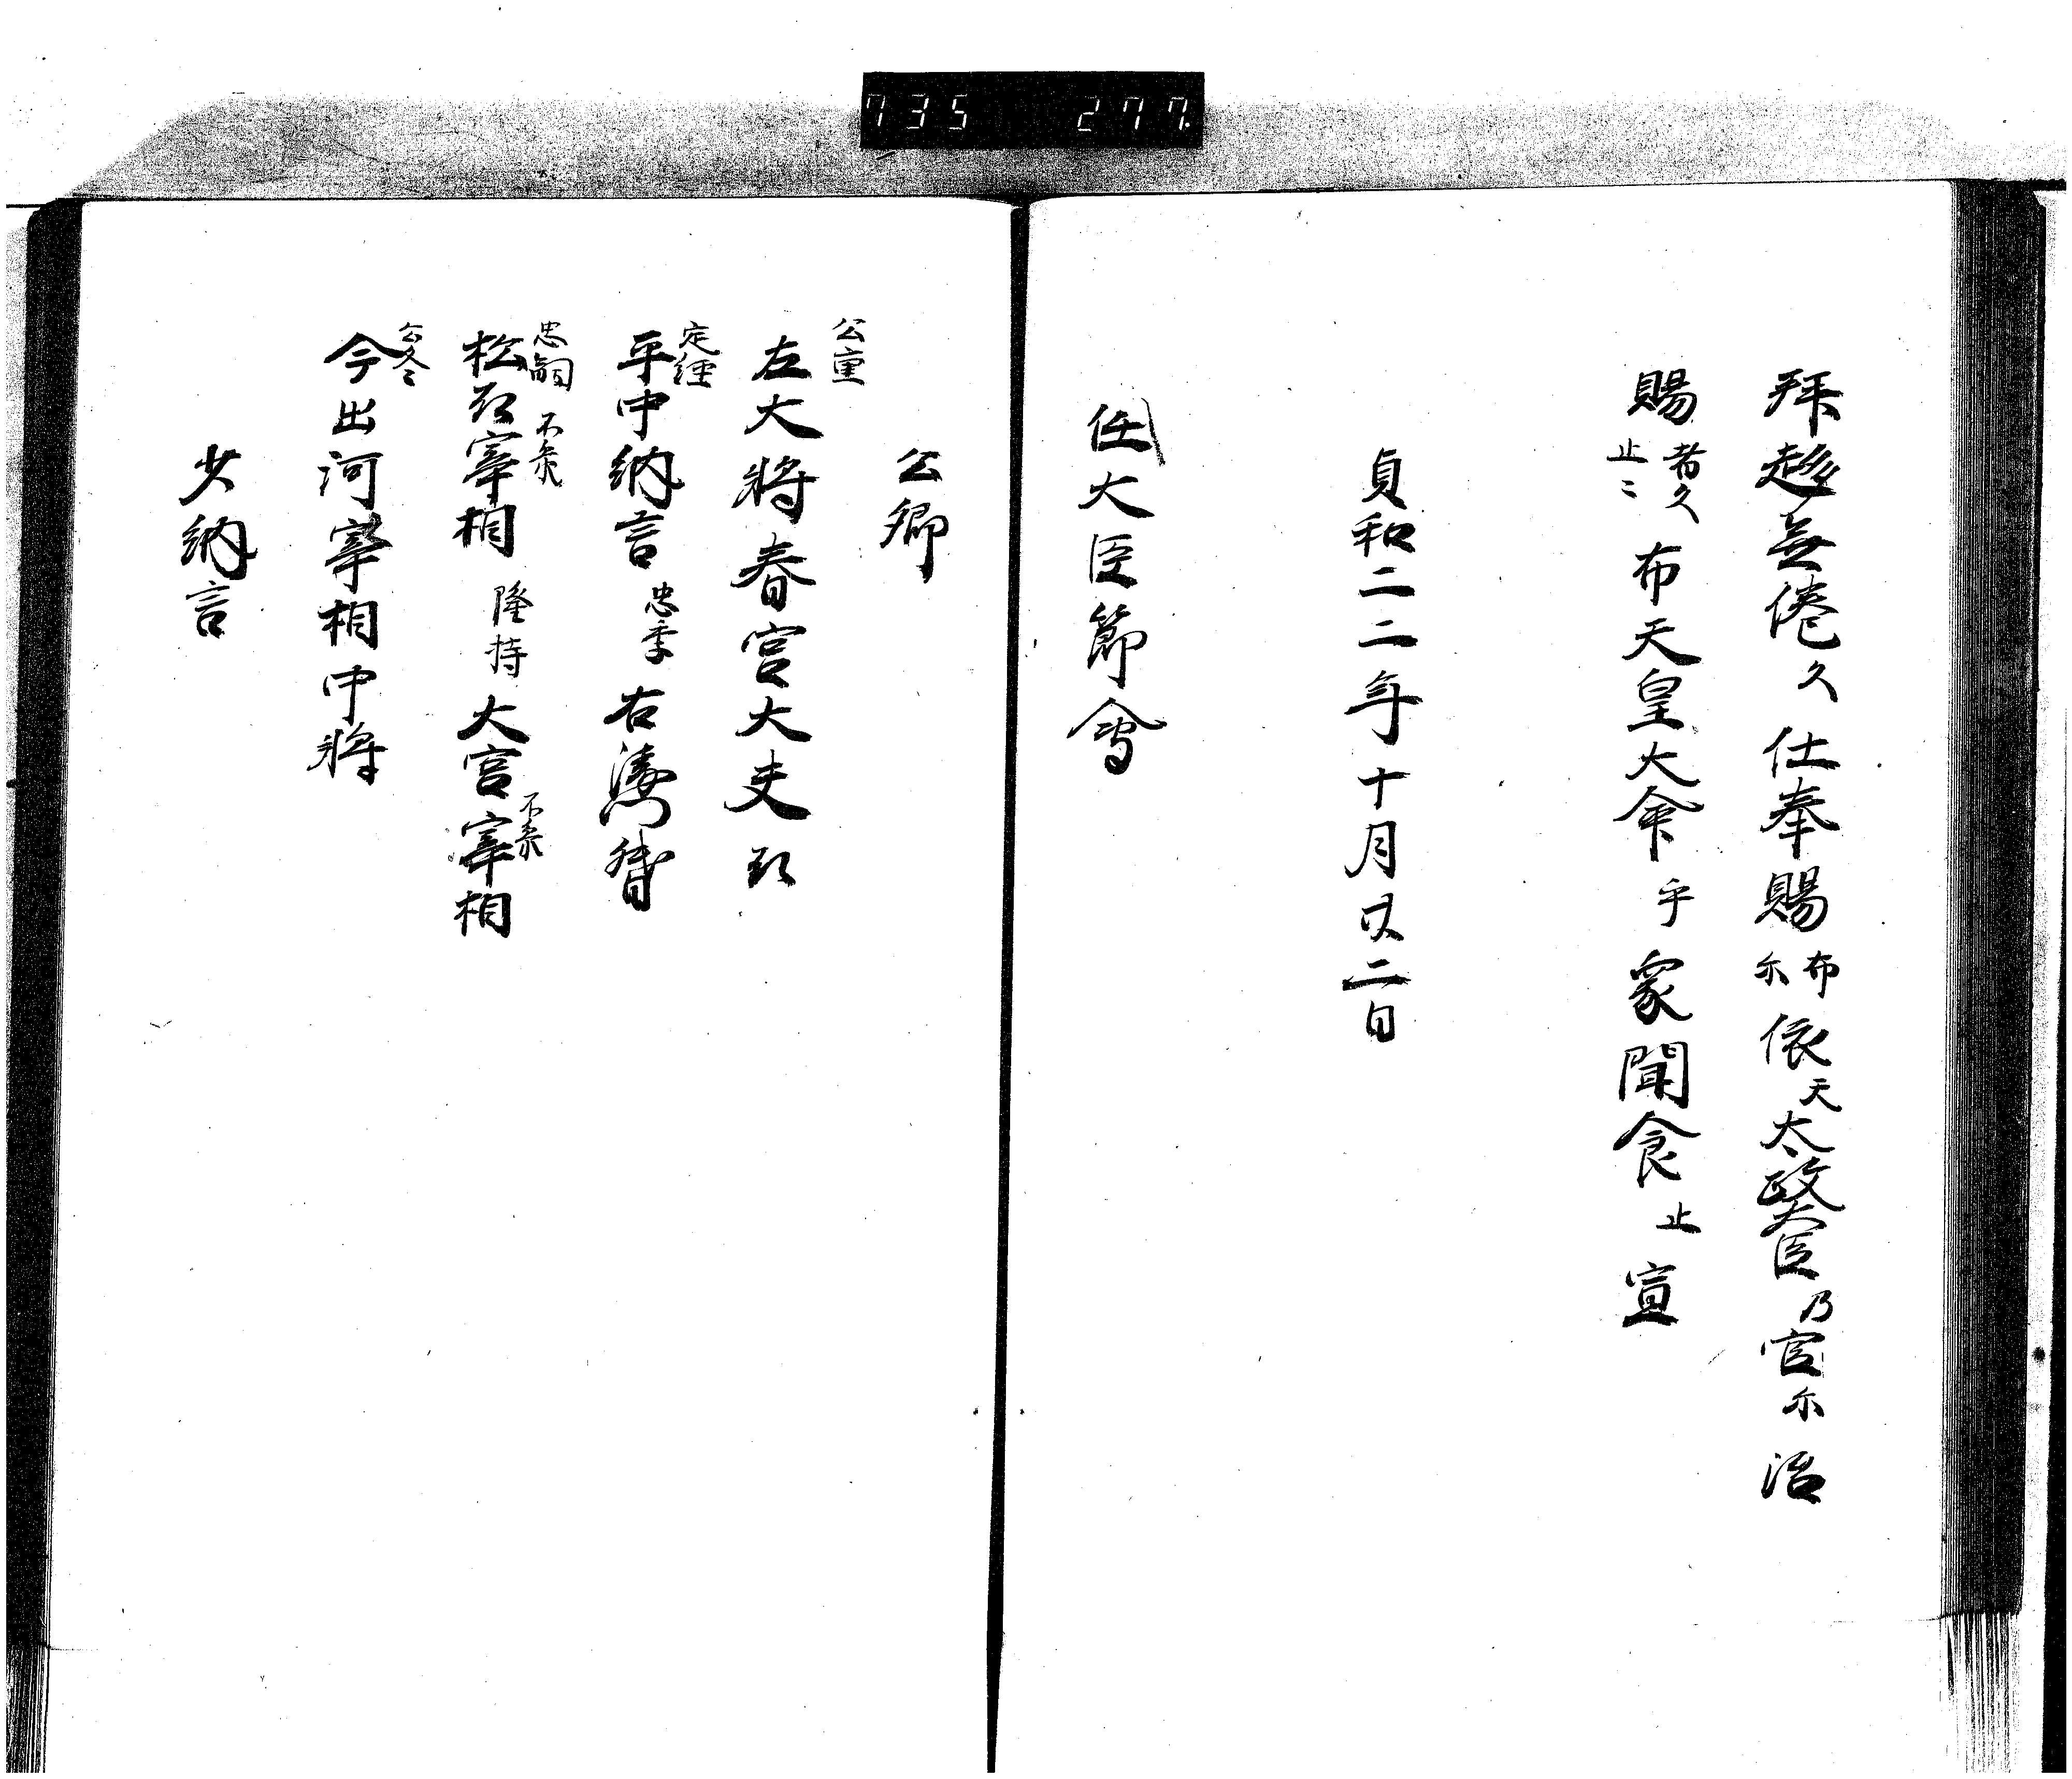 735 277
拜趍無倦久仕奉賜布尓依天太政大臣乃官尓治
賜者久止二布天皇大命乎衆聞食止宣
貞和二二年十月廿二日
任大臣節會
公卿
公重
左大将春宮大夫
定経
平中納言 忠季 右衛門督
忠嗣 不参
松殿宰相 隆持 大宮宰相 不参
公冬
今出河宰相中将
少納言